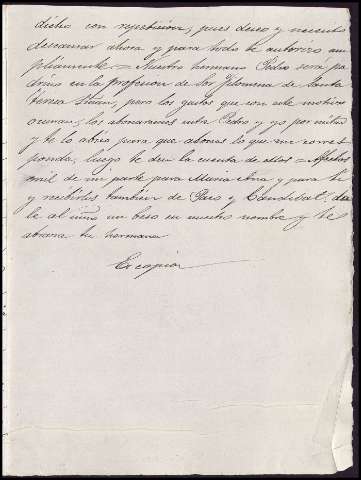 dicho con repeticion, pues deseo y necesito
descansar ahora y para todo te autorizo am-
pliamente = Nuestro hermano Pedro será pa-
drino en la profesion de Sor Filomena de Santa
Teresa, pero los gastos que con este motivo
ocurran, los abonaremos entre Pedro y yo por mitad
y te lo aviso para que abones lo que me corres
ponda, luego te den la cuenta de ellos = Afectos
mil de mi parte para Maria Ana y para ti
y recibirlos tambien de Paco y Candibal, da
le al niño un beso en nuestro nombre y te
abraza tu hermana
Es copia